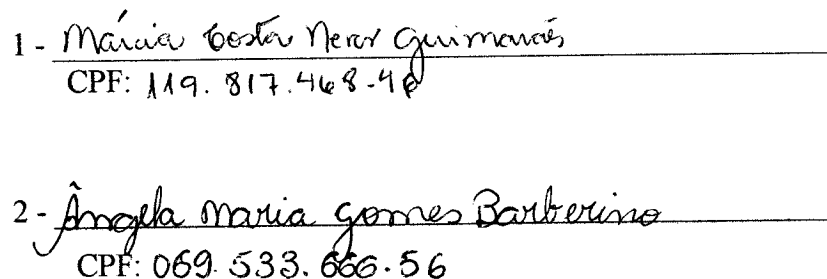 1 - Márcia Costa Neror Guimarães
CPF: 119.817.468-40
2 - Ângela Maria Gomes Barberino
CPF: 069.533.666.56